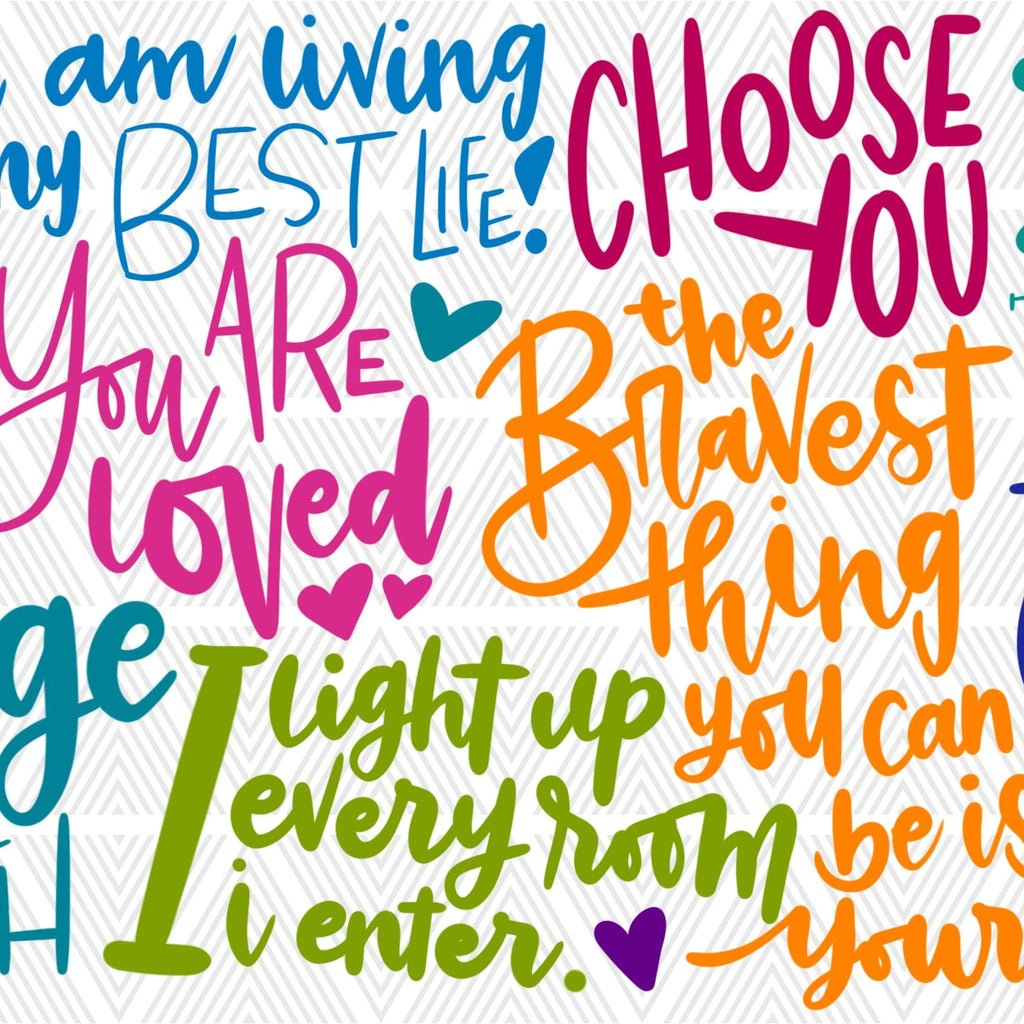 am living
my BEST LIFE!
CHOOSE
YOU
You ARE
loved
the
Bravest
thing
you can
be is
your
I light up
every room
i enter.
ge
H